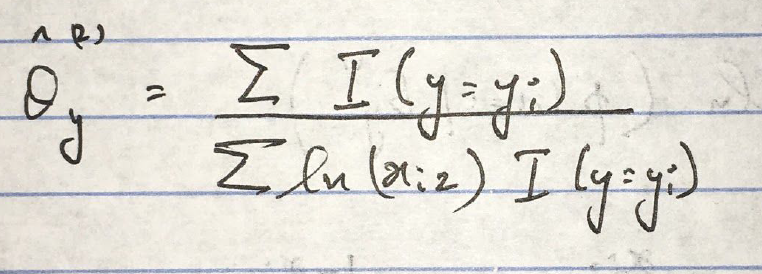 θ̂_y^(2) = \frac{∑ I(y=y_i)}{∑ ln(x_{i2}) I(y=y_i)}